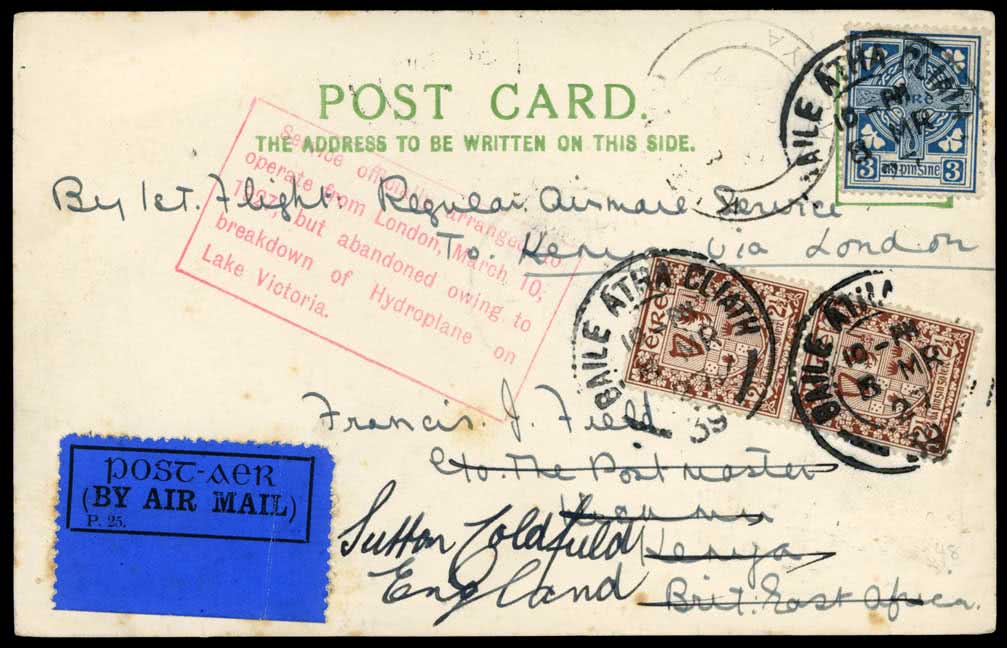 POST CARD.
THE ADDRESS TO BE WRITTEN ON THIS SIDE.
BAILE ÁTHA CLIATH
MR
éire
3 pinsine 3
Service officially arranged to
operate from London, March 10,
1927, but abandoned owing to
breakdown of Hydroplane on
Lake Victoria.
By 1st. Flight. Regular Airmail Service
To. Kenya via London
BAILE ÁTHA CLIATH
MR
39
éire
2½
BAILE ÁTHA
10-PM
MR
27
2½
Francis J. Field
c/o The Postmaster
Kisumu
Kenya
Brit. East Africa.
Sutton Coldfield
England
POST-AER
(BY AIR MAIL)
P. 25.